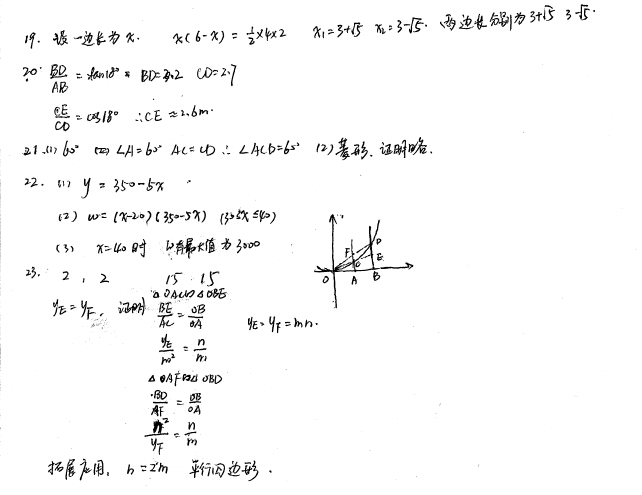 19. 设一边长为x. x(6-x)=½×4×2 x₁=3+√5 x₂=3-√5. 两边长分别为3+√5 3-√5.
20. BD/AB = tan18° BD=3.2 CD=2.7
CE/CD = cos18° ∴CE≈2.6m.
21. (1) 60° ∠A=60° AC=CD ∴∠ACD=60° (2) 菱形. 证明略.
22. (1) y=350-5x
(2) w=(x-20)(350-5x) (30≤x≤40)
(3) x=40时 w有最大值为3000
23. 2, 2 15 15
yE=yF. 证明 △OAC∽△OBE
BE/AC = OB/OA yE=yF=mn.
yE/m² = n/m
△OAF∽△OBD
BD/AF = OB/OA
n²/yF = n/m
拓展应用. n=2m 平行四边形.
F D C E
O A B